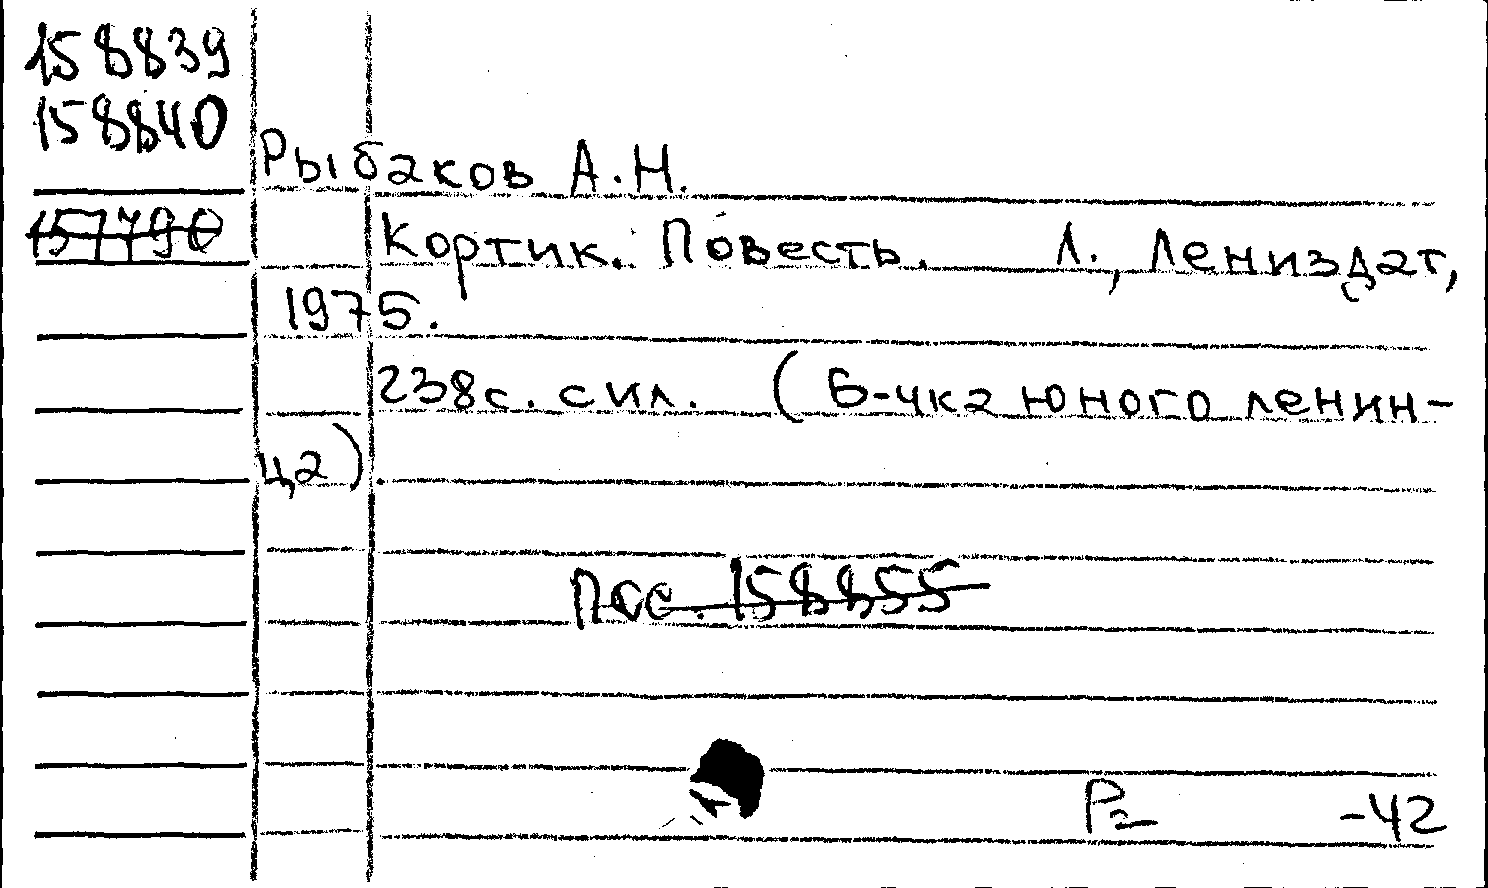 158839
158840
Рыбаков А.Н.
157790
Кортик. Повесть. Л., Лениздат,
1975.
238с. с ил. (Б-чка юного ленин-
ца).
158855
Р2 -42